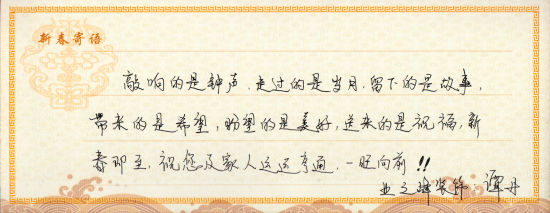 新春寄语
敲响的是钟声,走过的是岁月,留下的是故事,
带来的是希望,盼望的是美好,送来的是祝福,新
春即至,祝您及家人运运亨通,一旺向前!!
业之峰装饰 谭丹